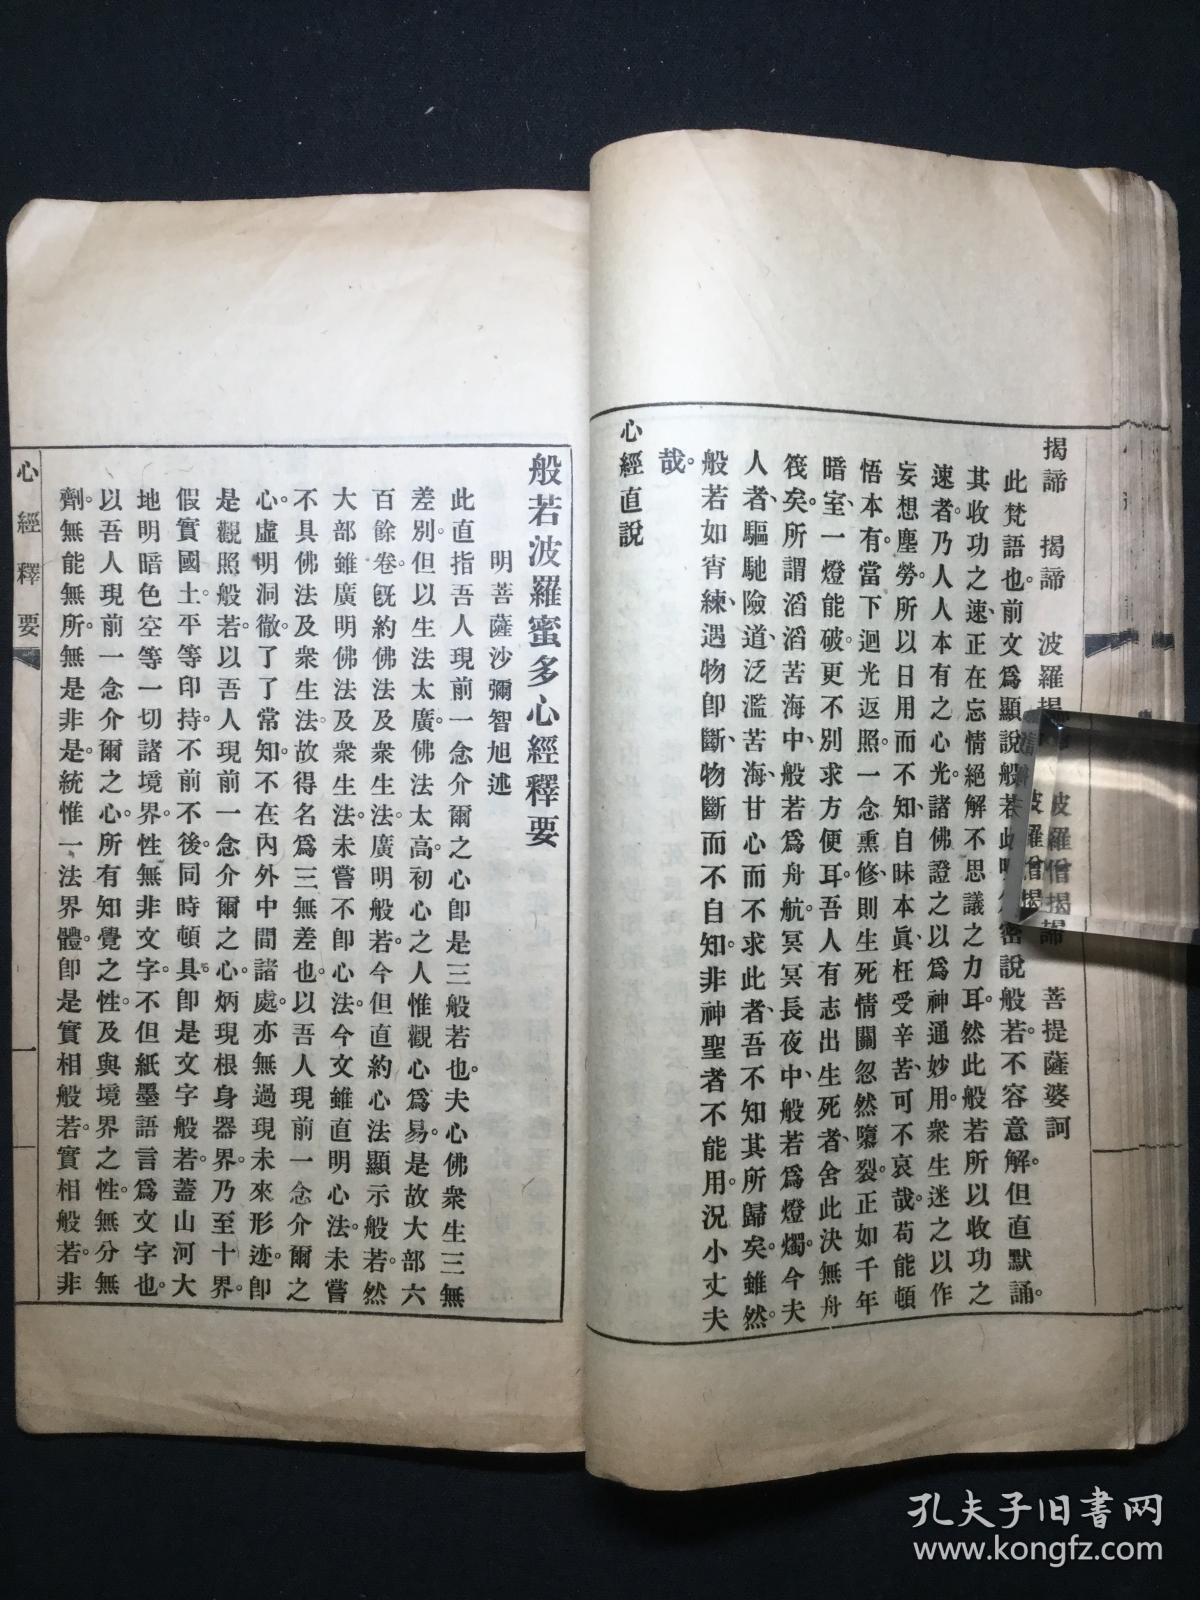 揭諦　揭諦　波羅揭　波羅僧揭諦　菩提薩婆訶
此梵語也。前文爲顯說般若。此　密說般若。不容意解。但直默誦。
其收功之速、正在忘情絕解不思議之力耳。然此般若所以收功之
速者。乃人人本有之心光。諸佛證之以爲神通妙用。衆生迷之以作
妄想塵勞。所以日用而不知。自昧本眞。枉受辛苦。可不哀哉。苟能頓
悟本有。當下迴光返照。一念熏修、則生死情關忽然隳裂。正如千年
暗室、一燈能破。更不別求方便耳。吾人有志出生死者、舍此決無舟
筏矣。所謂滔滔苦海中、般若爲舟航。冥冥長夜中、般若爲燈燭。今夫
人者、驅馳險道、泛濫苦海、甘心而不求此者、吾不知其所歸矣。雖然。
般若如宵練、遇物卽斷、物斷而不自知。非神聖者不能用。況小丈夫
哉。
心經直說
般若波羅蜜多心經釋要
明菩薩沙彌智旭述
此直指吾人現前一念介爾之心卽是三般若也。夫心佛衆生三無
差別。但以生法太廣。佛法太高。初心之人惟觀心爲易。是故大部六
百餘卷。旣約佛法及衆生法。廣明般若。今但直約心法顯示般若。然
大部雖廣明佛法及衆生法。未嘗不卽心法。今文雖直明心法。未嘗
不具佛法及衆生法。故得名爲三無差也。以吾人現前一念介爾之
心。虛明洞徹。了了常知。不在內外中間諸處。亦無過現未來形迹。卽
是觀照般若。以吾人現前一念介爾之心。炳現根身器界。乃至十界。
假實國土。平等印持。不前不後。同時頓具。卽是文字般若。蓋山河大
地明暗色空等一切諸境界。性無非文字。不但紙墨語言爲文字也。
以吾人現前一念介爾之心。所有知覺之性。及與境界之性。無分無
劑。無能無所。無是非是。統惟一法界體。卽是實相般若。實相般若。非
心經釋要
一
孔夫子旧書网
www.kongfz.com